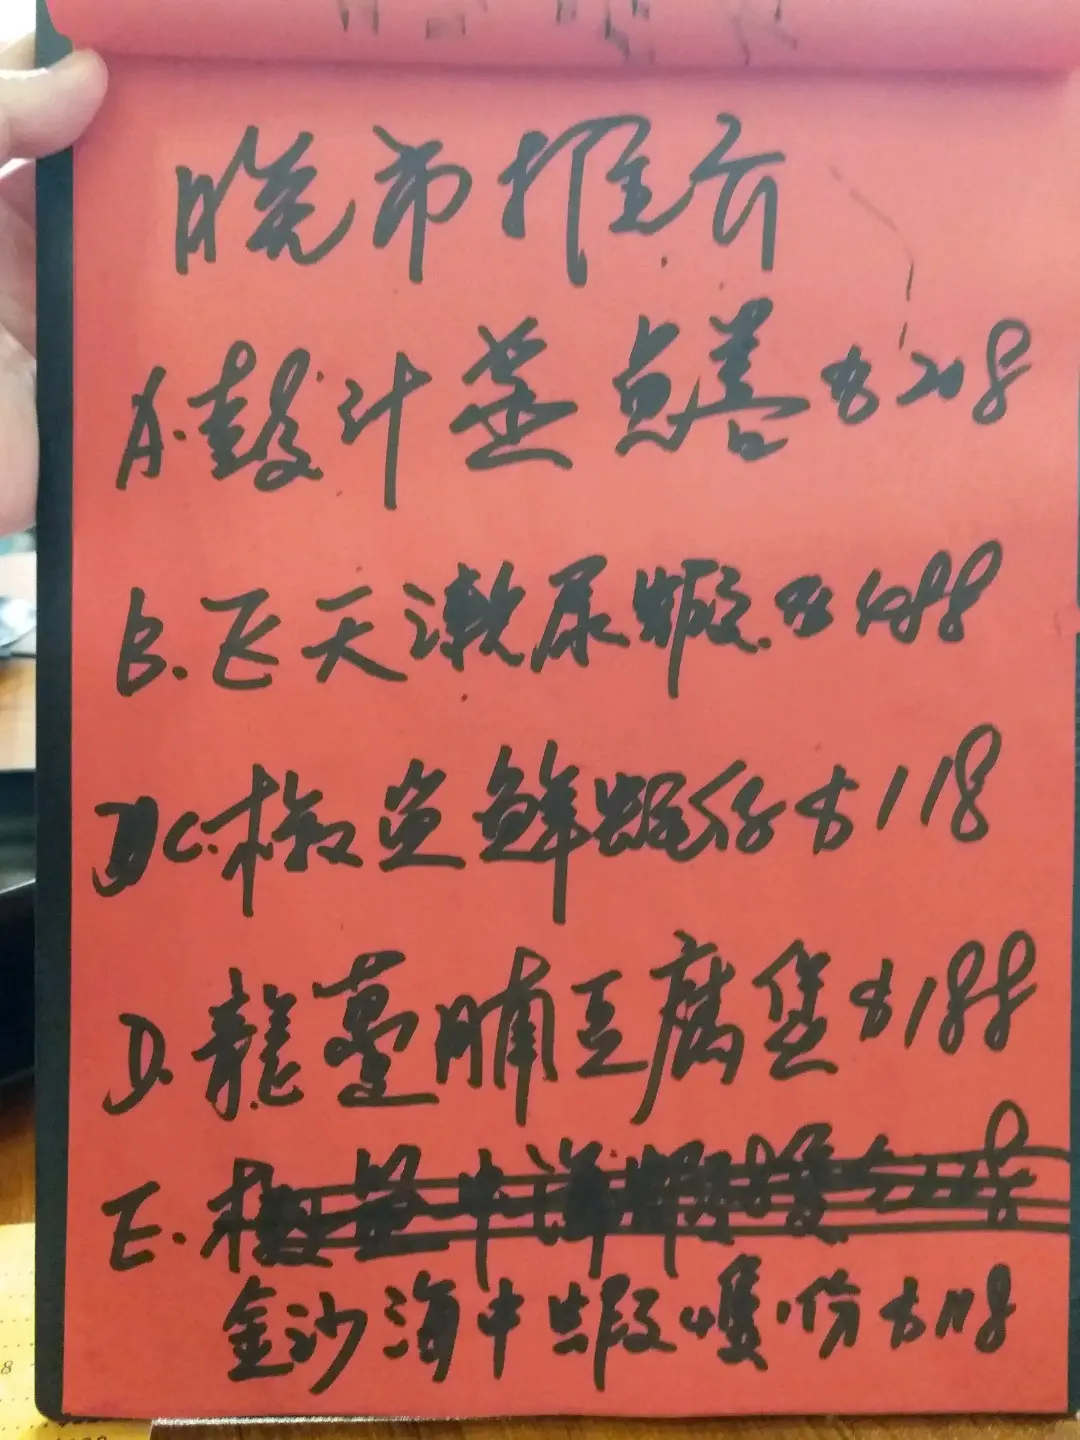 晚市推介
A.鼓汁蒸鱔 $208
B.飞天瀨尿蝦 $488
C.椒盐鮮仔 $118
D.龍躉腩豆腐煲 $188
E.
金沙海中蝦隻份 $118